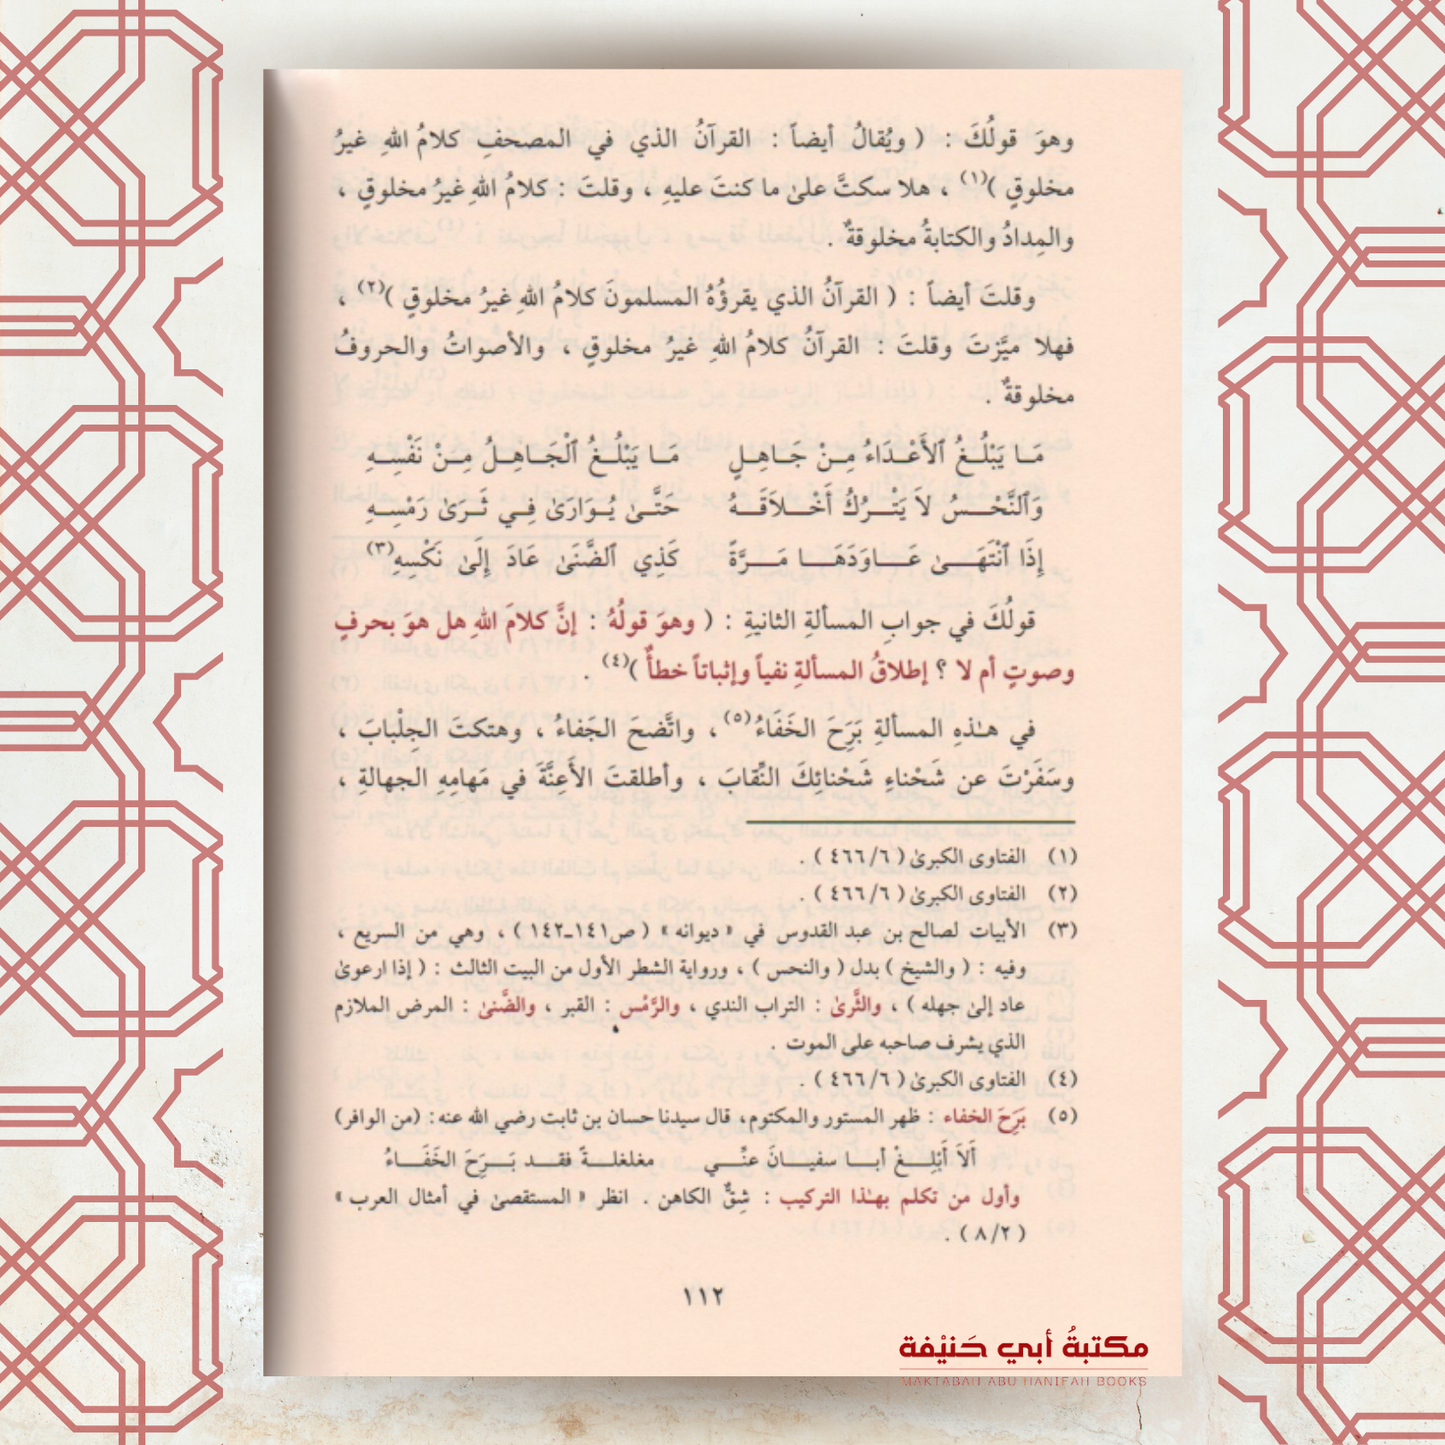 وهوَ قولُكَ : ( ويُقالُ أيضاً : القرآنُ الذي في المصحفِ كلامُ اللهِ غيرُ
مخلوقٍ )(١) ، هلا سكتَّ علىٰ ما كنتَ عليهِ ، وقلتَ : كلامُ اللهِ غيرُ مخلوقٍ ،
والمِدادُ والكتابةُ مخلوقةٌ .
وقلتَ أيضاً : ( القرآنُ الذي يقرؤُهُ المسلمونَ كلامُ اللهِ غيرُ مخلوقٍ )(٢) ،
فهلا ميَّزتَ وقلتَ : القرآنُ كلامُ اللهِ غيرُ مخلوقٍ ، والأصواتُ والحروفُ
مخلوقةٌ .
مَـا يَبْلُـغُ ٱلأَعْـدَاءُ مِـنْ جَـاهِـلٍ مَـا يَبْلُـغُ ٱلْجَـاهِـلُ مِـنْ نَفْسِـهِ
وَٱلنَّحْـسُ لاَ يَتْـرُكُ أَخْـلاَقَـهُ حَتَّـىٰ يُـوَارَىٰ فِـي ثَـرَىٰ رَمْسِـهِ
إِذَا ٱنْتَهَـىٰ عَـاوَدَهَـا مَـرَّةً كَذِي ٱلضَّنَىٰ عَادَ إِلَىٰ نَكْسِهِ(٣)
قولُكَ في جوابِ المسألةِ الثانيةِ : ( وهوَ قولُهُ : إنَّ كلامَ اللهِ هل هوَ بحرفٍ
وصوتٍ أم لا ؟ إطلاقُ المسألةِ نفياً وإثباتاً خطأٌ )(٤) .
في هـٰذهِ المسألةِ بَرَِحَ الخَفَاءُ(٥) ، واتَّضحَ الجَفاءُ ، وهتكتَ الجِلْبابَ ،
وسَفَرْتَ عن شَحْناءِ شَحْنائِكَ النِّقابَ ، وأطلقتَ الأَعِنَّةَ في مَهامِهِ الجهالةِ ،
(١) الفتاوى الكبرىٰ ( ٤٦٦/٦ ) .
(٢) الفتاوى الكبرىٰ ( ٤٦٦/٦ ) .
(٣) الأبيات لصالح بن عبد القدوس في « ديوانه » ( ص١٤١ـ١٤٢ ) ، وهي من السريع ،
وفيه : ( والشيخ ) بدل ( والنحس ) ، ورواية الشطر الأول من البيت الثالث : ( إذا ارعوىٰ
عاد إلىٰ جهله ) ، والثَّرىٰ : التراب الندي ، والرَّمْس : القبر ، والضَّنىٰ : المرض الملازم
الذي يشرف صاحبه على الموت .
(٤) الفتاوى الكبرىٰ ( ٤٦٦/٦ ) .
(٥) بَرَِحَ الخفاء : ظهر المستور والمكتوم، قال سيدنا حسان بن ثابت رضي الله عنه: (من الوافر)
أَلاَ أَبْلِـغْ أبـا سفيـانَ عنِّـي مغلغلـةً فقـد بَـرَِحَ الخَفَـاءُ
وأول من تكلم بهـٰذا التركيب : شِقٌّ الكاهن . انظر « المستقصىٰ في أمثال العرب »
( ٨/٢ ) .
١١٢
مكتبةُ أبي حَنيْفة
MAKTABAH ABU HANIFAH BOOKS